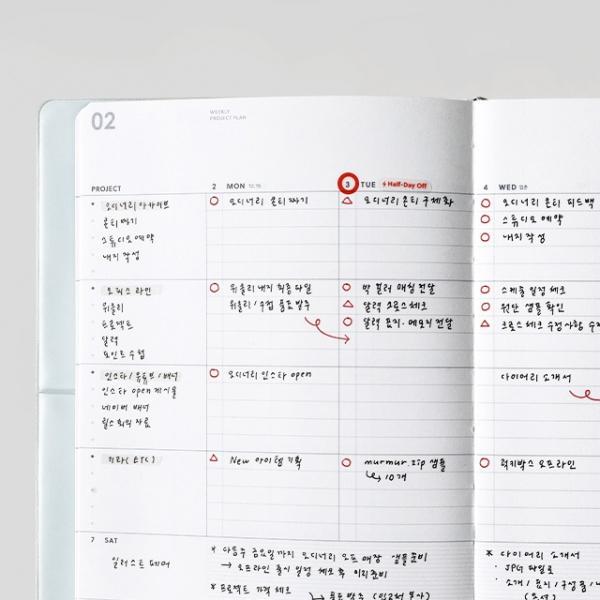 02
WEEKLY
PROJECT PLAN
PROJECT
2 MON
3 TUE Half-Day Off
4 WED
오디너리 아카이브
콘티 짜기
스튜디오 예약
내지 작성
오디너리 콘티 짜기
오디너리 콘티 구체화
오디너리 콘티 피드백
스튜디오 예약
내지 작성
오피스 라인
위클리
프로젝트
달력
포인트 수첩
위클리 내지 최종 파일
위클리/수첩 용도 발주
박 컬러 매칭 전달
달력 크로스체크
달력 표지·메모지 전달
스케줄 일정 체크
원단 샘플 확인
크로스체크 수정사항
인스타/유튜브/배너
인스타 open 게시물
네이버 배너
오디너리 인스타 open
다이어리 소개서
기타(ETC)
New 아이템 기획
murmur.zip 샘플
↳ 10개
럭키박스 오프라인
7 SAT
일러스트 페어
* 다음주 금요일까지 오디너리 오프 매장 샘플 준비
→ 오프라인 출시 일정 체크 후 미리 준비
* 프로젝트 가격 체크
* 다이어리 소개서
· JPG 파일로
· 소개/표지/구성품/